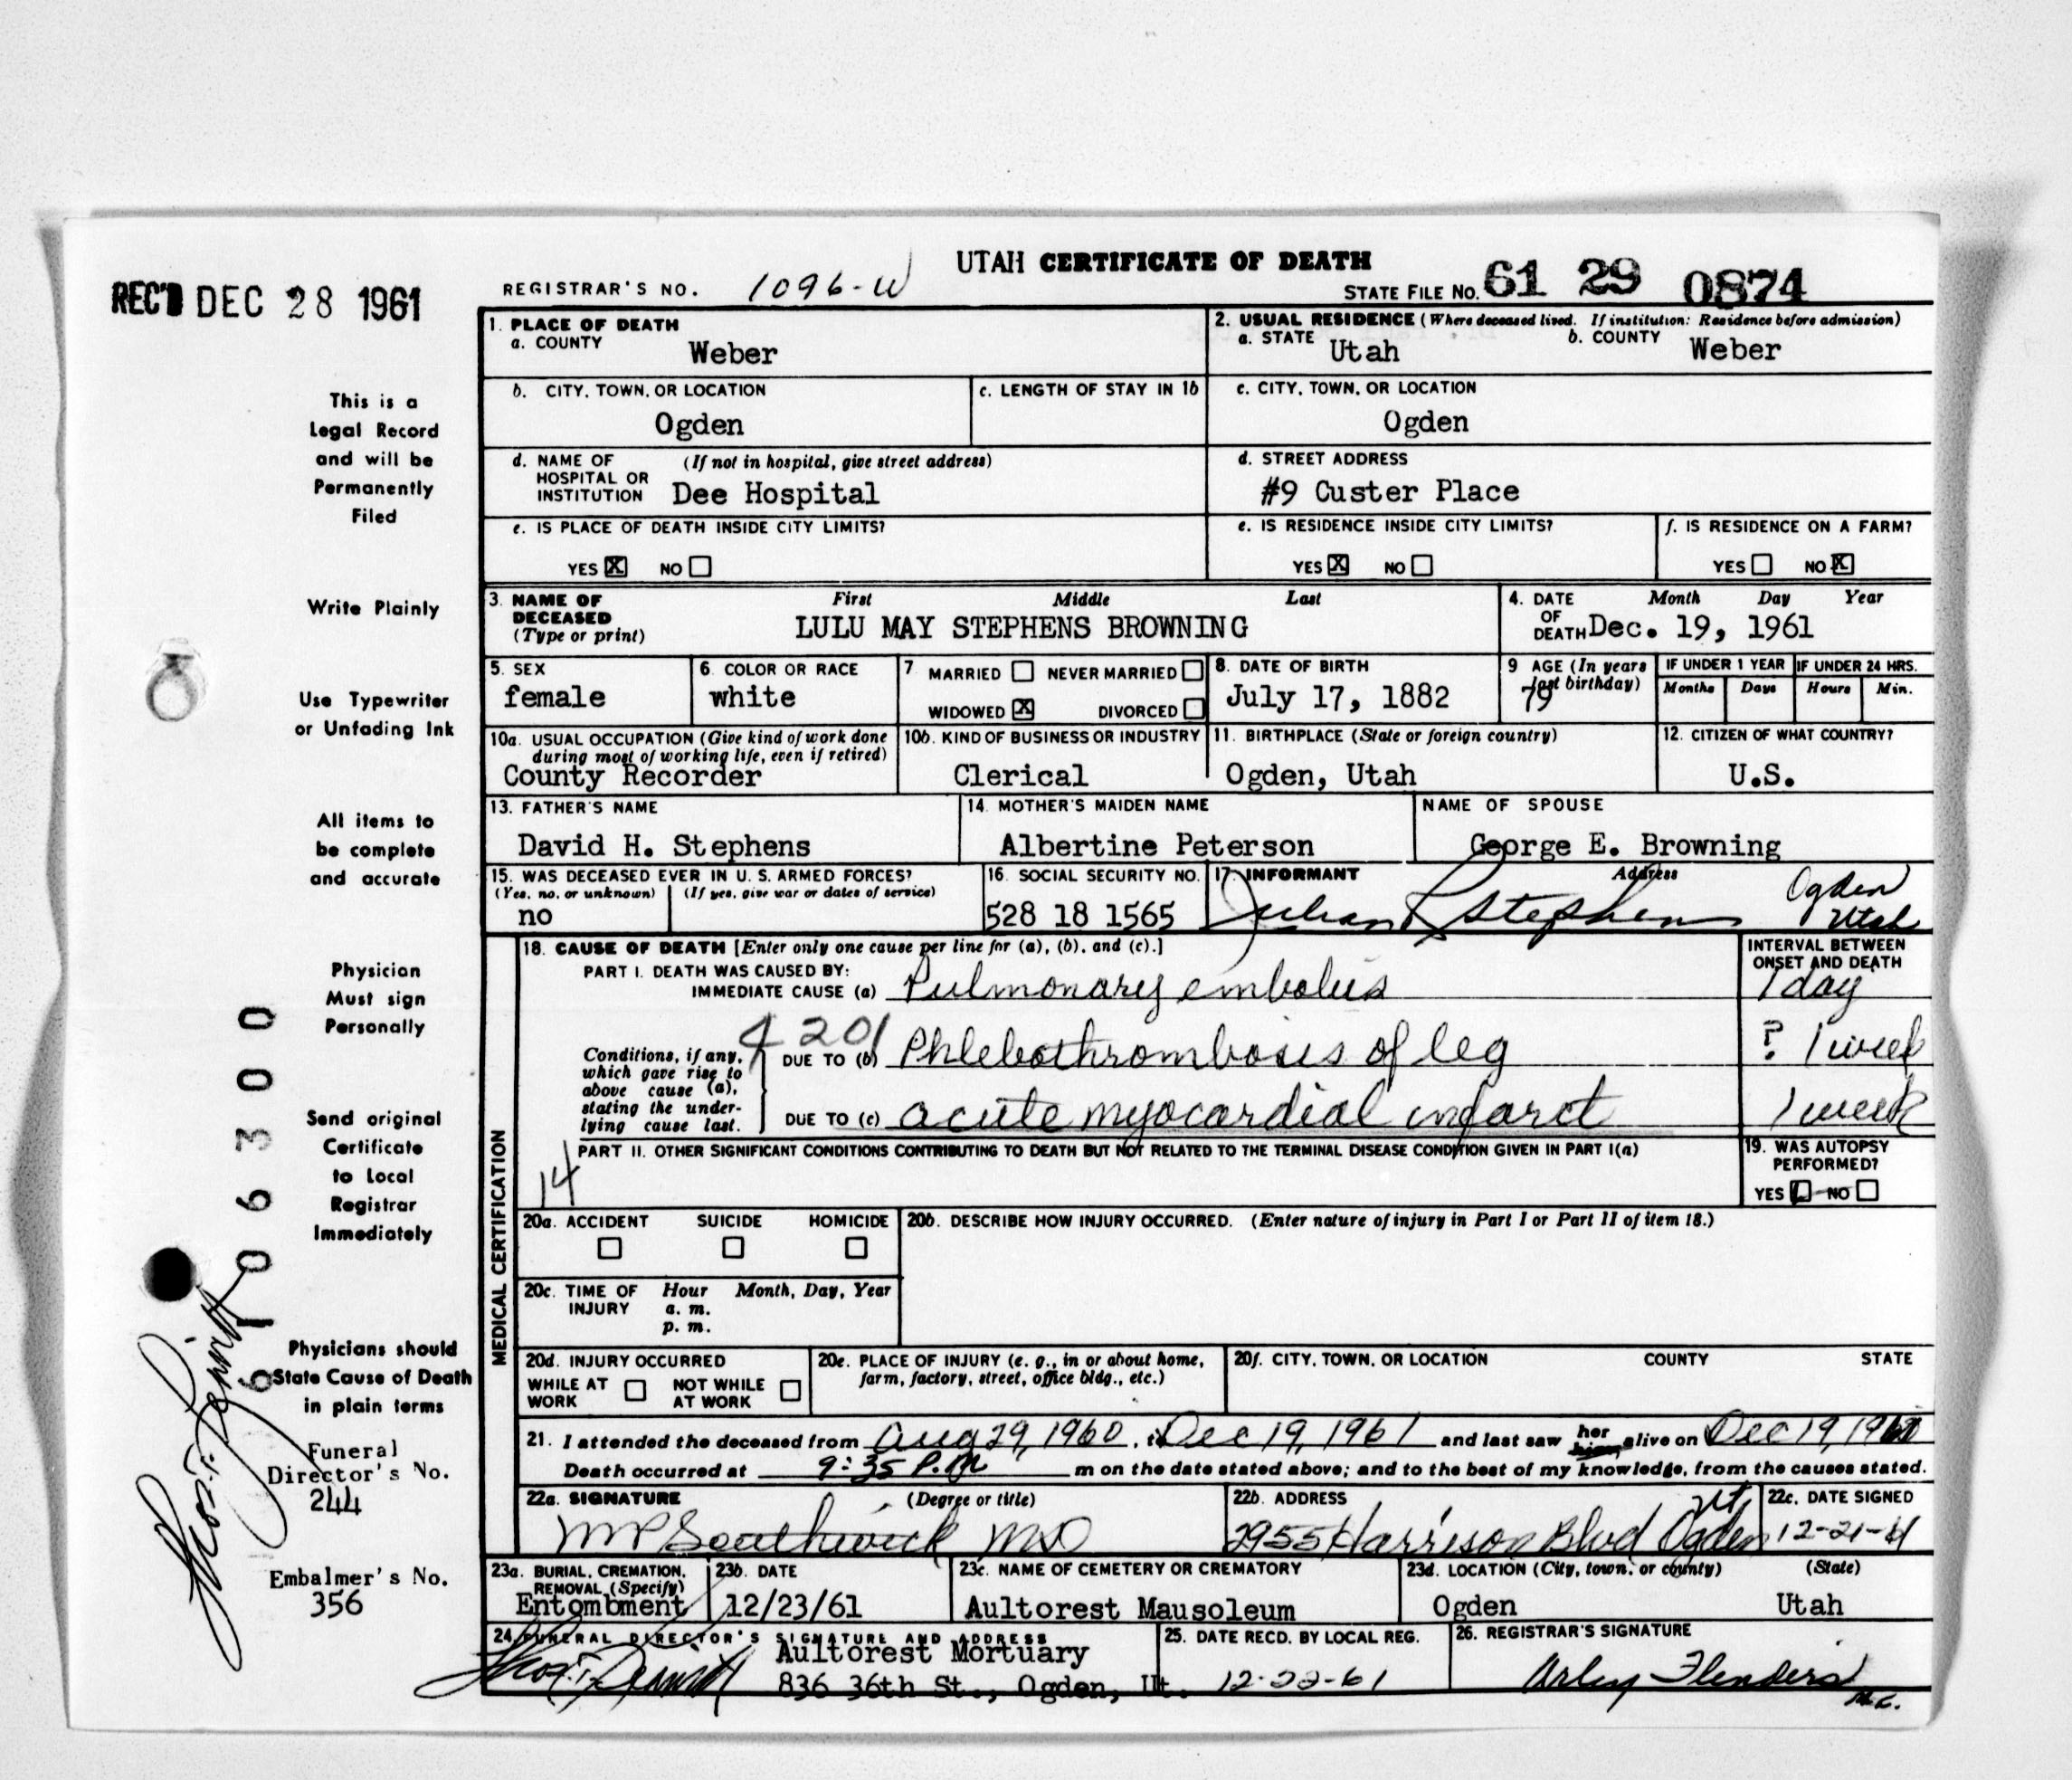 UTAH CERTIFICATE OF DEATH
REC'D DEC 28 1961
REGISTRAR'S NO. 1096-W
STATE FILE NO. 61 29 0874
This is a
Legal Record
and will be
Permanently
Filed
Write Plainly
Use Typewriter
or Unfading Ink
All items to
be complete
and accurate
Physician
Must sign
Personally
Send original
Certificate
to Local
Registrar
Immediately
Physicians should
State Cause of Death
in plain terms
Funeral
Director's No.
244
Embalmer's No.
356
6106300
1. PLACE OF DEATH
a. COUNTY Weber
2. USUAL RESIDENCE (Where deceased lived. If institution: Residence before admission)
a. STATE Utah b. COUNTY Weber
b. CITY, TOWN, OR LOCATION
Ogden
c. LENGTH OF STAY IN 1b
c. CITY, TOWN, OR LOCATION
Ogden
d. NAME OF (If not in hospital, give street address)
HOSPITAL OR
INSTITUTION Dee Hospital
d. STREET ADDRESS
#9 Custer Place
e. IS PLACE OF DEATH INSIDE CITY LIMITS?
YES X NO
e. IS RESIDENCE INSIDE CITY LIMITS?
YES X NO
f. IS RESIDENCE ON A FARM?
YES NO X
3. NAME OF DECEASED (Type or print) First Middle Last
LULU MAY STEPHENS BROWNING
4. DATE OF DEATH Month Day Year
Dec. 19, 1961
5. SEX
female
6. COLOR OR RACE
white
7 MARRIED NEVER MARRIED
WIDOWED X DIVORCED
8. DATE OF BIRTH
July 17, 1882
9 AGE (In years last birthday)
79
IF UNDER 1 YEAR IF UNDER 24 HRS.
Months Days Hours Min.
10a. USUAL OCCUPATION (Give kind of work done
during most of working life, even if retired)
County Recorder
10b. KIND OF BUSINESS OR INDUSTRY
Clerical
11. BIRTHPLACE (State or foreign country)
Ogden, Utah
12. CITIZEN OF WHAT COUNTRY?
U.S.
13. FATHER'S NAME
David H. Stephens
14. MOTHER'S MAIDEN NAME
Albertine Peterson
NAME OF SPOUSE
George E. Browning
15. WAS DECEASED EVER IN U. S. ARMED FORCES?
(Yes, no, or unknown) (If yes, give war or dates of service)
no
16. SOCIAL SECURITY NO.
528 18 1565
17. INFORMANT Address
Stephens Ogden
Utah
18. CAUSE OF DEATH [Enter only one cause per line for (a), (b), and (c).]
INTERVAL BETWEEN
ONSET AND DEATH
PART I. DEATH WAS CAUSED BY:
IMMEDIATE CAUSE (a) Pulmonary embolus 1 day
4201
Conditions, if any,
which gave rise to
above cause (a),
stating the under-
lying cause last.
DUE TO (b) Phlebothrombosis of leg ? 1 week
DUE TO (c) acute myocardial infarct 1 week
PART II. OTHER SIGNIFICANT CONDITIONS CONTRIBUTING TO DEATH BUT NOT RELATED TO THE TERMINAL DISEASE CONDITION GIVEN IN PART I(a)
14
19. WAS AUTOPSY
PERFORMED?
YES NO
MEDICAL CERTIFICATION
20a. ACCIDENT SUICIDE HOMICIDE
20b. DESCRIBE HOW INJURY OCCURRED. (Enter nature of injury in Part I or Part II of item 18.)
20c. TIME OF INJURY Hour Month, Day, Year
a. m.
p. m.
20d. INJURY OCCURRED
WHILE AT WORK NOT WHILE AT WORK
20e. PLACE OF INJURY (e. g., in or about home,
farm, factory, street, office bldg., etc.)
20f. CITY, TOWN, OR LOCATION COUNTY STATE
21. I attended the deceased from Aug 29, 1960, to Dec 19, 1961 and last saw her him alive on Dec 19, 1961
Death occurred at 9:35 P.M m on the date stated above; and to the best of my knowledge, from the causes stated.
22a. SIGNATURE (Degree or title)
MP Southwick MD
22b. ADDRESS
2955 Harrison Blvd Ogden Ut
22c. DATE SIGNED
12-21-61
23a. BURIAL, CREMATION,
REMOVAL (Specify)
Entombment
23b. DATE
12/23/61
23c. NAME OF CEMETERY OR CREMATORY
Aultorest Mausoleum
23d. LOCATION (City, town, or county) (State)
Ogden Utah
24. FUNERAL DIRECTOR'S SIGNATURE AND ADDRESS
Aultorest Mortuary
836 36th St., Ogden, Ut.
25. DATE RECD. BY LOCAL REG.
12-22-61
26. REGISTRAR'S SIGNATURE
Arley Flinders
M.C.